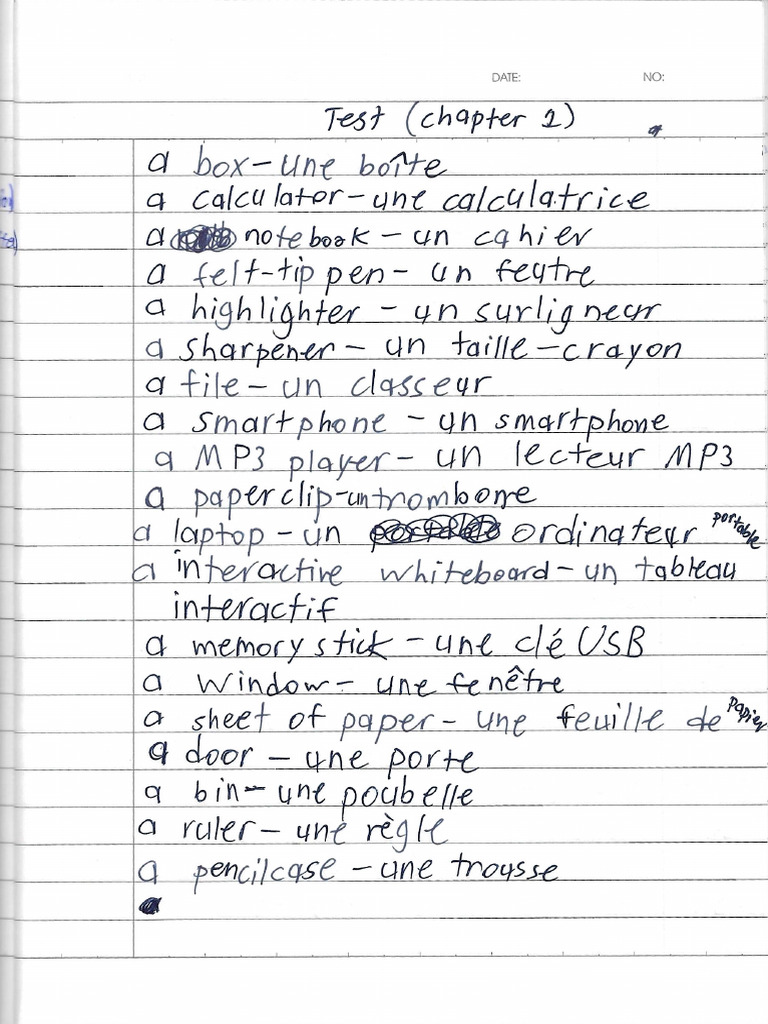 DATE: NO:
Test (chapter 1)
a box - une boîte
a calculator - une calculatrice
a notebook - un cahier
a felt-tip pen - un feutre
a highlighter - un surligneur
a sharpener - un taille-crayon
a file - un classeur
a smartphone - un smartphone
a MP3 player - un lecteur MP3
a paperclip - un trombone
a laptop - un ordinateur portable
a interactive whiteboard - un tableau
interactif
a memory stick - une clé USB
a window - une fenêtre
a sheet of paper - une feuille de papier
a door - une porte
a bin - une poubelle
a ruler - une règle
a pencilcase - une trousse